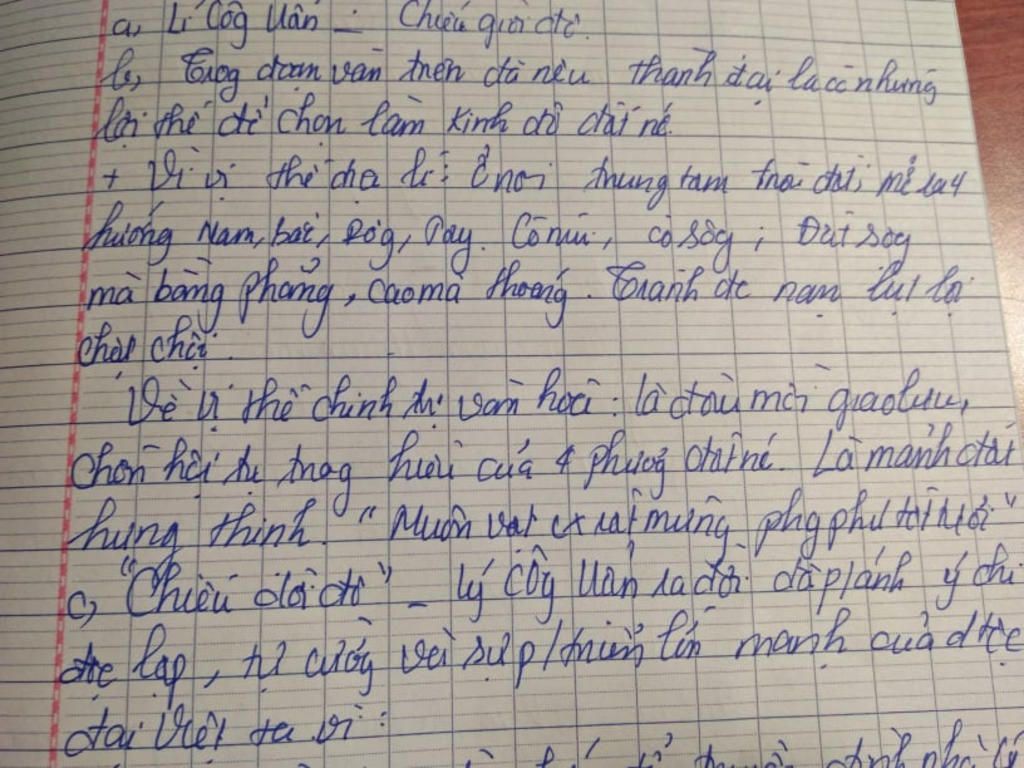 a, Lí Côg Uẩn - Chiếu giời đô.
b, Trog đoạn văn trên đã nêu thành đại la có những
lợi thế để chọn làm kinh đô đất nc.
+ Về vị thế địa lí: Ở nơi trung tâm trời đất, mở ra 4
hướng Nam, bắc, Đôg, Tây. Có núi, có sôg; Đất rộg
mà bằng phẳng, cao mà thoág. Tránh đc nạn lụt lội
chật chội.
Về vị thế chính trị văn hoá: là đầu mối giao lưu,
chốn hội tụ trọg huyếu của 4 phươg đất nc. Là mảnh đất
hưng thịnh. "Muôn vật cx rất mực phg phú tốt tươi"
c, "Chiếu dời đô" - Lý Côg Uẩn ra đời đã p/ánh ý chí
độc lập, tự cườg và sự p/triển lớn mạnh của d tộc
đại Việt ta vì: